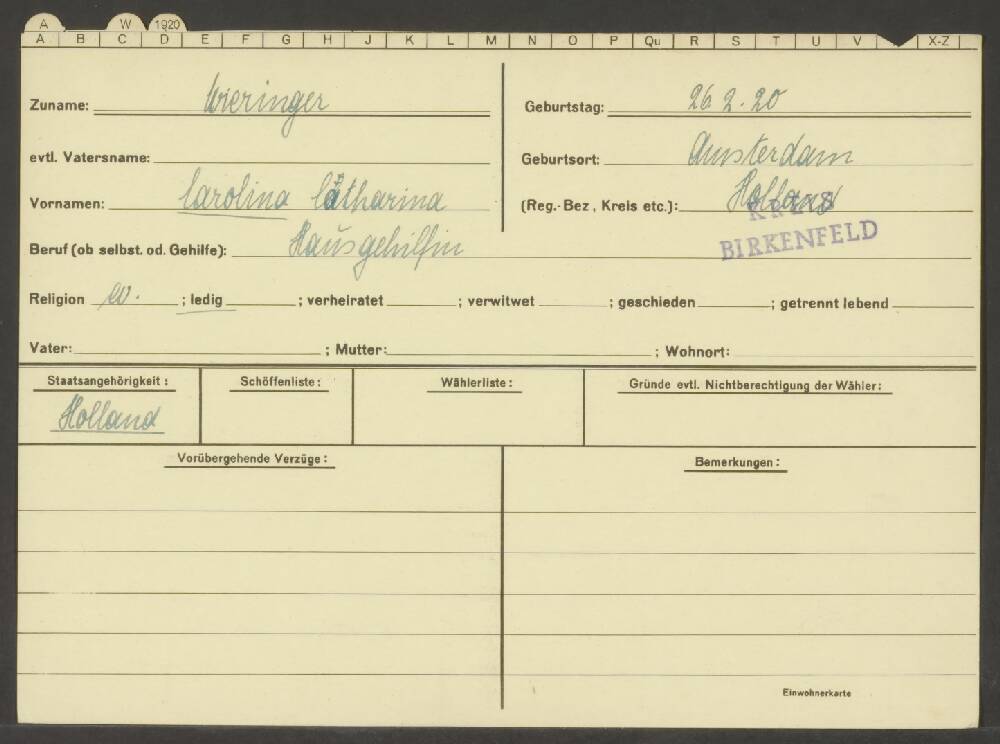 A W 1920
A B C D E F G H J K L M N O P Qu R S T U V X-Z
Zuname: Wieringer
Geburtstag: 26.2.20
evtl. Vatersname:
Geburtsort: Amsterdam
Vornamen: Carolina Catharina
(Reg.-Bez, Kreis etc.): Holland
KREIS
BIRKENFELD
Beruf (ob selbst. od. Gehilfe): Hausgehilfin
Religion ev. ; ledig ; verheiratet ; verwitwet ; geschieden ; getrennt lebend
Vater: ; Mutter: ; Wohnort:
Staatsangehörigkeit: Schöffenliste: Wählerliste: Gründe evtl. Nichtberechtigung der Wähler:
Holland
Vorübergehende Verzüge: Bemerkungen:
Einwohnerkarte